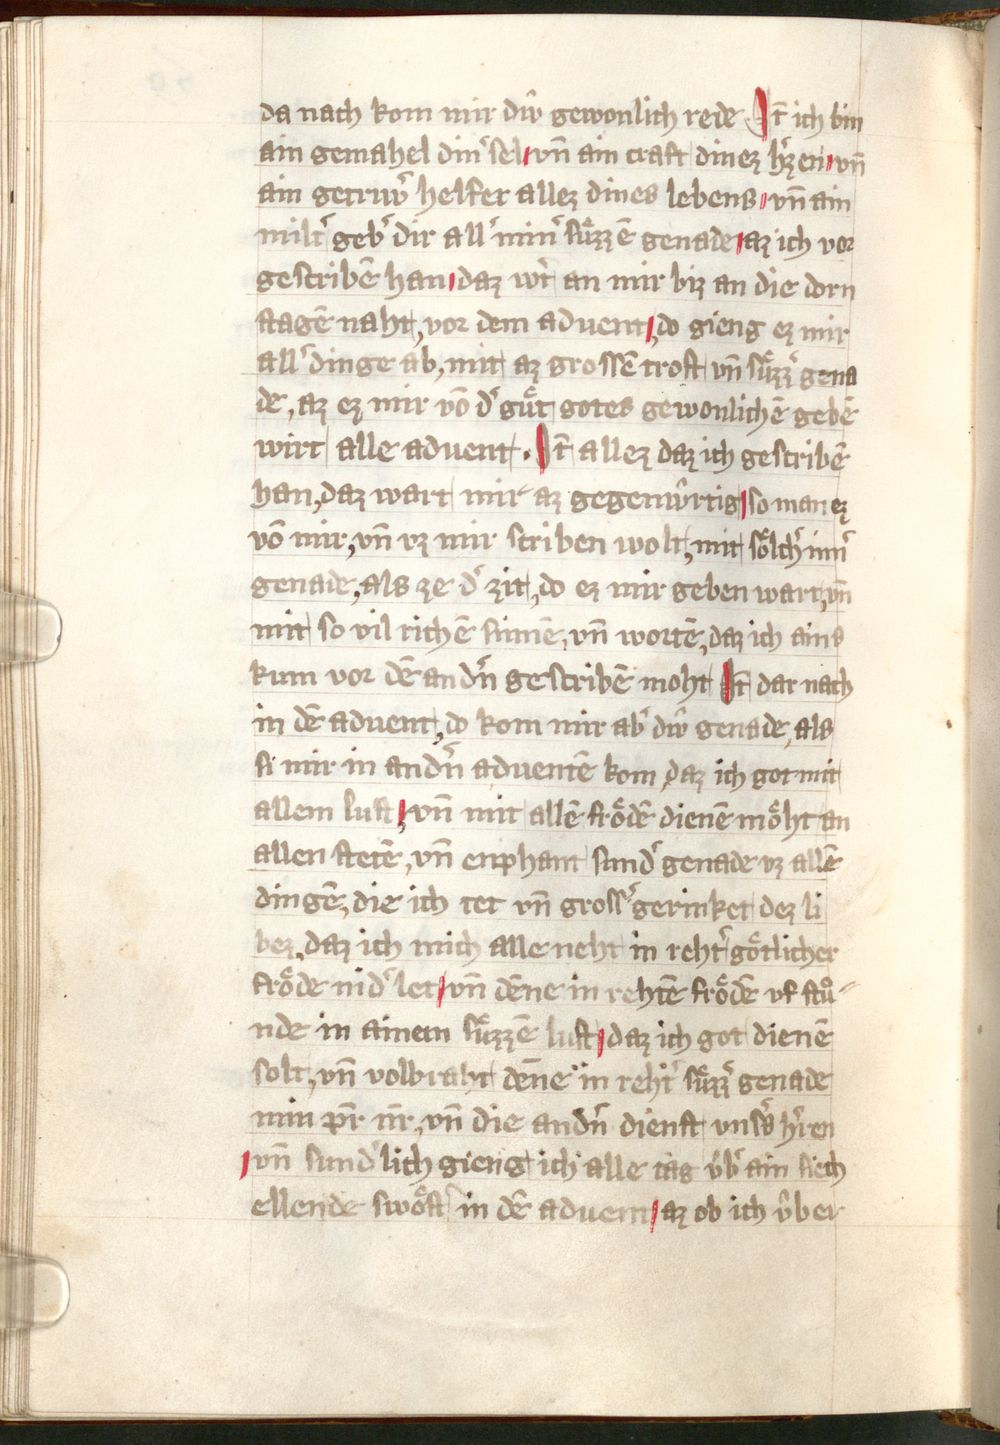 da nach kom mir diw̑ gewonlich rede It̄ ich bin
ain gemahel din͛ sel vn̄ ain craft dinez h͛zen vn̄
ain getriw͛ helfer allez dines lebens vn̄ ain
milt͛ geb͛ dir all͛ min͛ sůzzē genade az ich vor
gescribē han daz w͛t an mir biz an die dorn
stagē naht, vor dem advent, do gieng ez mir
all͛ dinge ab, mit az grossē trost vn̄ sůzz͛ gena
de, az ez mir vō d͛ gůt gotes gewonlichē gebē
wirt alle advent. It̄ allez daz ich gescribē
han, daz wart mir az gegenw̑rtig so man ez
vō mir, vn̄ vz mir scriben wolt, mit sölch͛ inn͛
genade, als ze d͛ zit, do ez mir geben wart, vn̄
mit so vil richē sinnē, vn̄ wortē, daz ich ains
kum vor dē and͛n gescribē moht It̄ dar nach
in dē advent, do kom mir ab͛ diw̑ genade, als
si mir in and͛n adventē kom, daz ich got mit
allem lust, vn̄ mit allē frödē dienē möht an
allen stetē, vn̄ enphant sund͛ genade vz allē
dingē, die ich tet vn̄ gross͛ gerinket dez li
bez, daz ich mich alle neht in reht͛ götlicher
fröde nid͛ let vn̄ dēne in rehtē frödē vf stů
nde in ainem sůzzē lust daz ich got dienē
solt, vn̄ volbraht dēne in reht͛ sůzz͛ genade
min pr̄ nr̄, vn̄ die and͛n dienst vns͛s h͛ren
vn̄ sund͛lich gieng ich alle tag v̑b͛ ain siech
ellende swöst͛ in dē advent az ob ich v̑ber